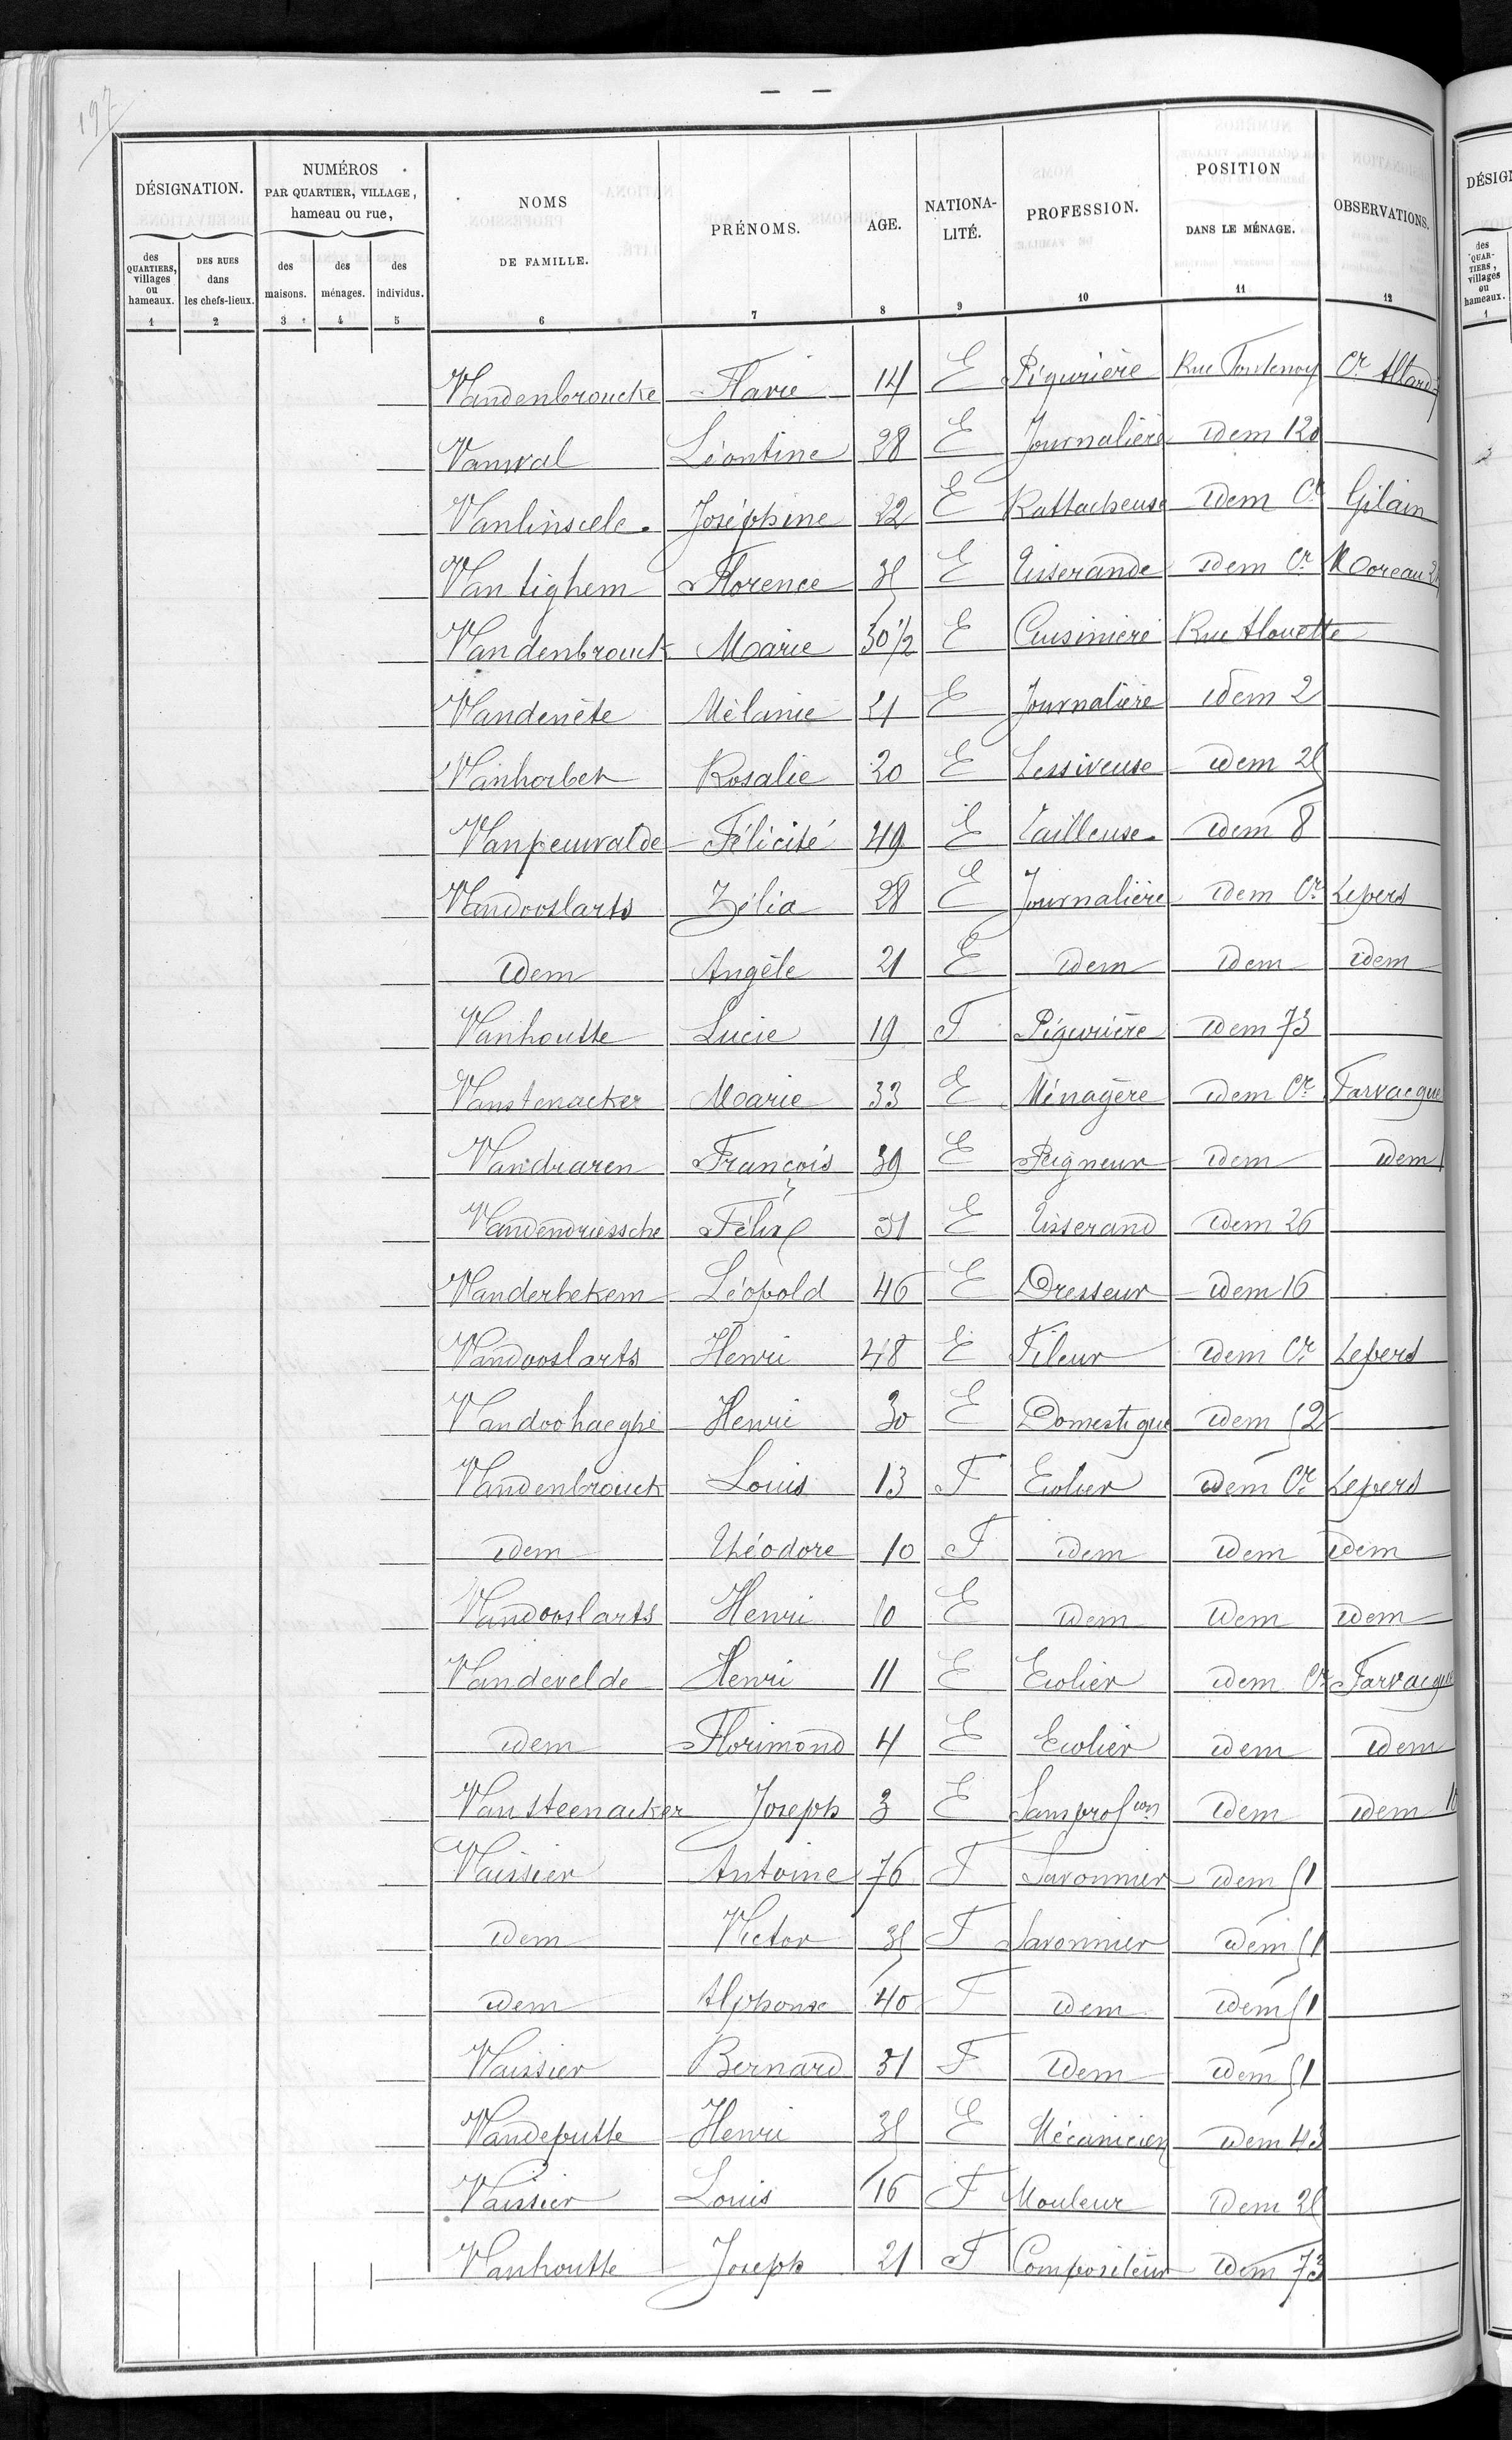 197
DÉSIGNATION. NUMÉROS PAR QUARTIER, VILLAGE, hameau ou rue, NOMS DE FAMILLE. PRÉNOMS. AGE. NATIONA-LITÉ. PROFESSION. POSITION DANS LE MÉNAGE. OBSERVATIONS.
des QUARTIERS, villages ou hameaux. DES RUES dans les chefs-lieux. des maisons. des ménages. des individus.
1 2 3 4 5 6 7 8 9 10 11 12
Vandenbroucke Flavie 14 E Piqurière Rue Fontenoy Cr Allard
Vanwal Léontine 28 E Journalière idem 120
Vanlinsele Joséphine 22 E Rattacheuse idem Cr Gilain
Vantighem Florence 35 E Tisserande idem Cr Moreau
Vandenbrouck Marie 30 1/2 E Cuisinière Rue Alouette
Vandenète Mélanie 21 E Journalière idem 2
Vanhorbek Rosalie 20 E Lessiveuse idem 25
Vanpeuvalde Félicité 49 E Tailleuse idem 8
Vandooslarts Zélia 28 E Journalière idem Cr Lepers
idem Angèle 21 E idem idem idem
Vanhoutte Lucie 19 F Piqurière idem 73
Vanstenacker Marie 33 E Ménagère idem Cr Farvacque
Vandraren François 39 E Peigneur idem idem
Vandendriessche Félix 51 E Tisserand idem 26
Vanderbekem Léopold 46 E Dresseur idem 16
Vandooslarts Henri 48 E Fileur idem Cr Lepers
Vandoohaeghe Henri 30 E Domestique idem 52
Vandenbrouck Louis 13 F Ecolier idem Cr Lepers
idem Théodore 10 F idem idem idem
Vandooslarts Henri 10 E idem idem idem
Vandevelde Henri 11 E Ecolier idem Cr Farvacque
idem Florimond 4 E Ecolier idem idem
Vansteenacker Joseph 3 E Sans profion idem idem 10
Vaissier Antoine 76 F Savonnier idem 51
idem Victor 35 F Savonnier idem 51
idem Alphonse 40 F idem idem 51
Vaissier Bernard 31 F idem idem 51
Vandeputte Henri 35 E Mécanicien idem 43
Vaissier Louis 16 F Mouleur idem 25
Vanhoutte Joseph 21 F Compositeur idem 73
DÉSIGN
des QUAR-TIERS, villages ou hameaux.
1